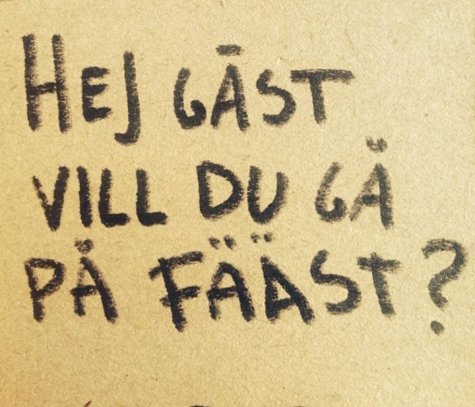 HEJ GÄST
VILL DU GÅ
PÅ FÄÄST?